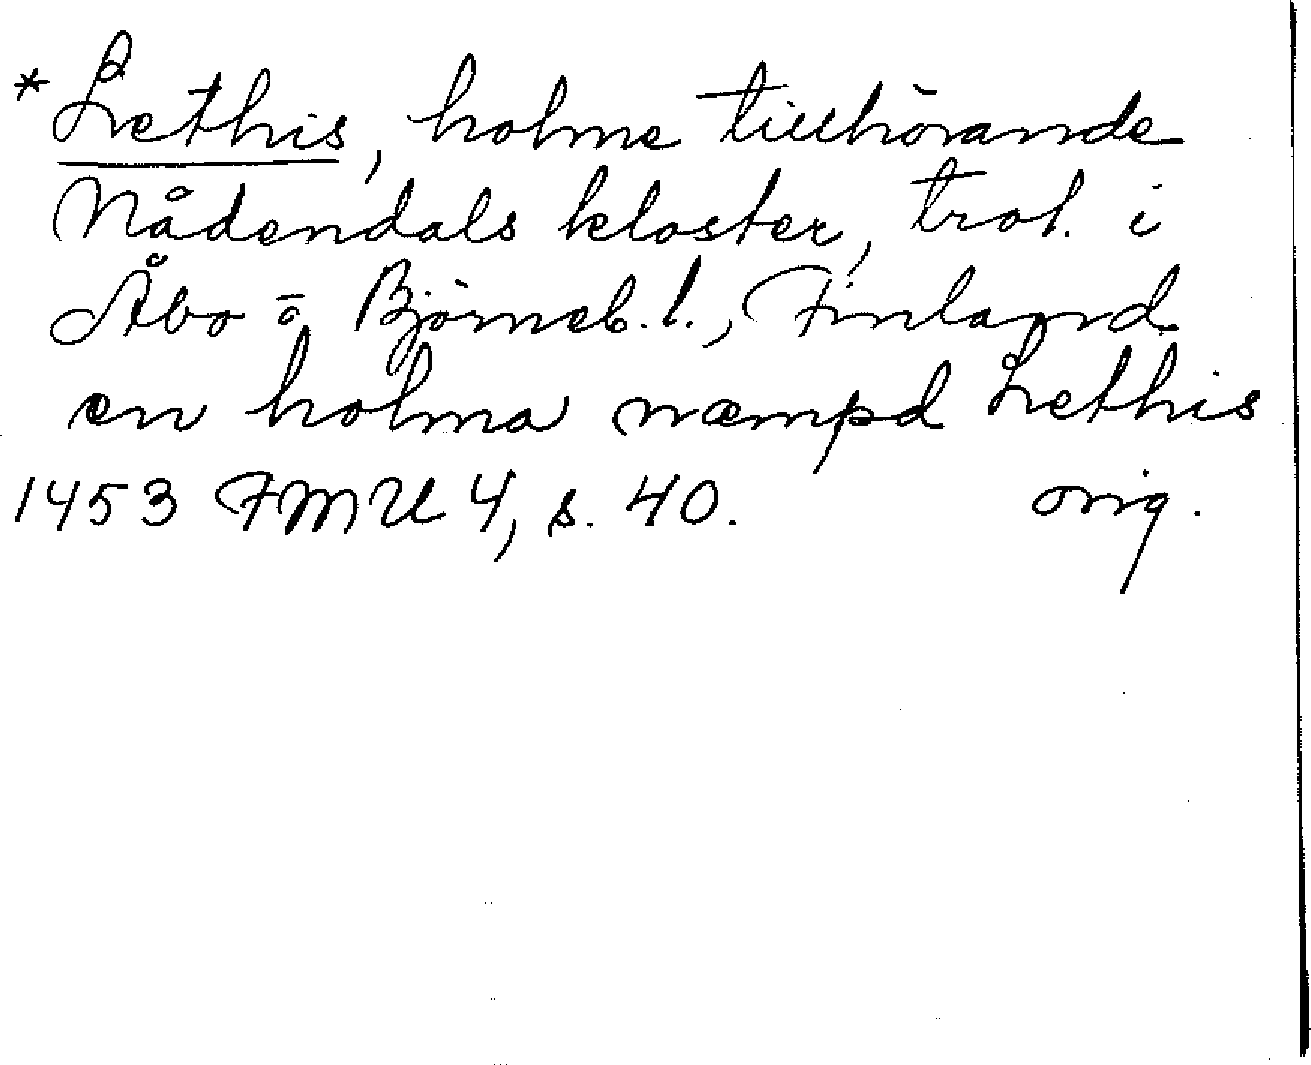 * Lethis, holme tillhörande
Nådendals kloster, trol. i
Åbo o Björneb. l., Finland
en holma næmpd Lethis
1453 FMU 4, s. 40. orig.